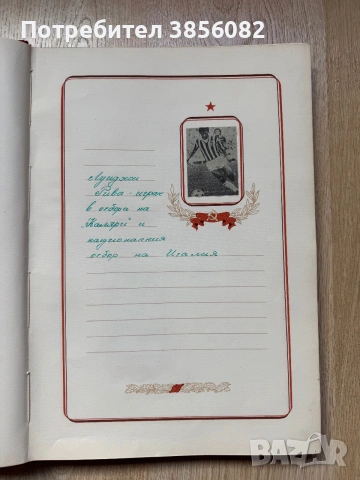 Потребител 3856082
Луиджи
Рива - играч
в отбора на
"Каляри" и
националния
отбор на Италия
BAZAR